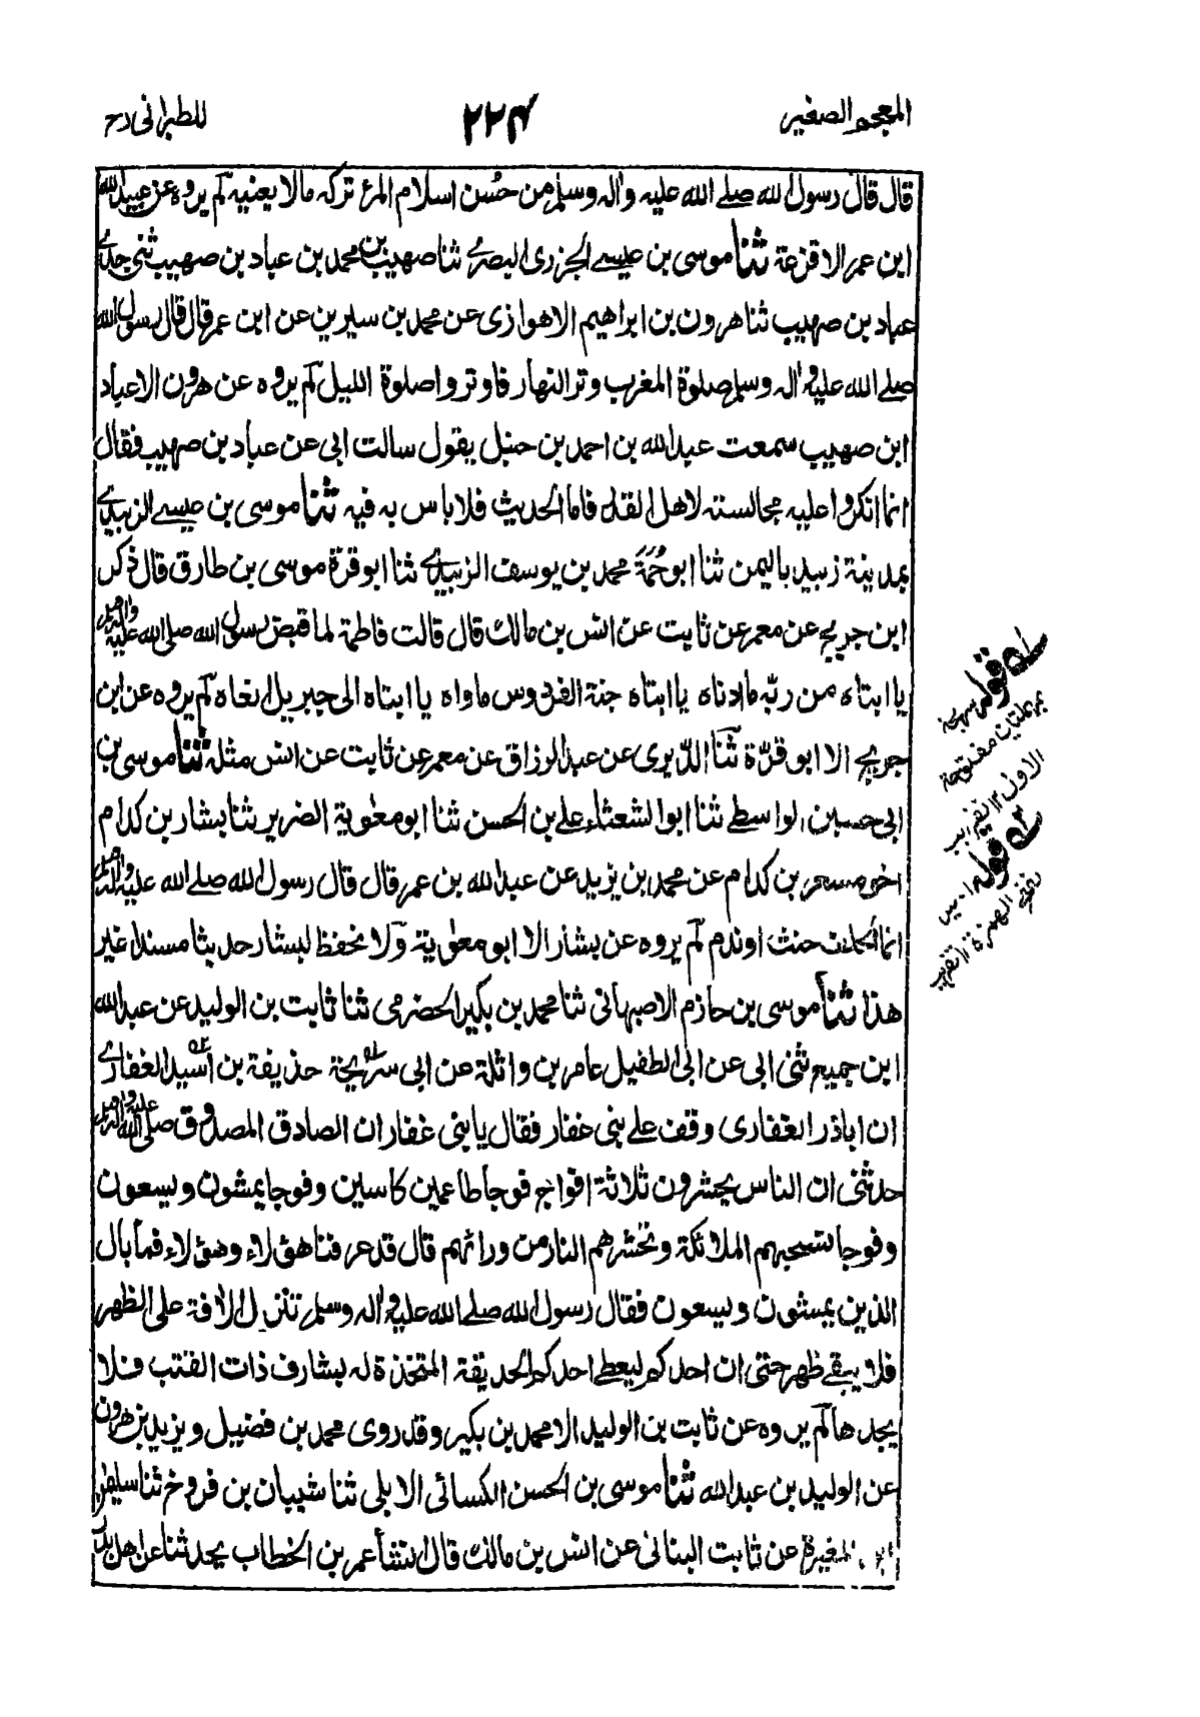 المعجم الصغير
٢٢٤
للطبرانی رح
قال قال رسول الله صلے الله عليه واٰله وسلم من حُسن اسلام المرء تركه مالا يعنيه لم يروه عن عبيد الله
ابن عمر الا قزعة ثنا موسى بن عيسے الجزرى البصرے ثنا صهيب بن محمد بن عباد بن صهيب ثنى جدے
عباد بن صهيب ثنا هرون بن ابراهيم الاهوازى عن محمد بن سيرين عن ابن عمر قال قال رسول الله
صلے الله عليه واٰله وسلم صلوة المغرب وتر النهار فاوتروا صلوة الليل لم يروه عن هرون الا عباد
ابن صهيب سمعت عبد الله بن احمد بن حنبل يقول سالت ابى عن عباد بن صهيب فقال
انما انكروا عليه مجالسته لاهل القدر فاما الحديث فلا باس به فيه ثنا موسى بن عيسے الزبيدے
بمدينة زبيد باليمن ثنا ابو حُمَةَ محمد بن يوسف الزبيدے ثنا ابو قرة موسى بن طارق قال ذكر
ابن جريج عن معمر عن ثابت عن انس بن مالك قال قالت فاطمة لما قبض رسول الله صلى الله عليه واٰله وسلم
يا ابتاه من ربّه ما ادناه يا ابتاه جنة الفردوس ماواه يا ابتاه الى جبريل انعاه لم يروه عن ابن
جريج الا ابو قرّة ثنا الدّبرى عن عبد الرزاق عن معمر عن ثابت عن انس مثله ثنا موسى بن
ابى حصين الواسطے ثنا ابو الشعثاء علے بن الحسن ثنا ابو معٰوية الضرير ثنا بشار بن كدام
اخى مسعر بن كدام عن محمد بن زيد عن عبد الله بن عمر قال قال رسول الله صلے الله عليه واٰله وسلم
انما الحلف حنث او ندم لم يروه عن بشار الا ابو معٰوية ولا نحفظ لبشار حديثا مسندا غير
هذا ثنا موسى بن حازم الاصبهانى ثنا محمد بن بكير الحضرمى ثنا ثابت بن الوليد عن عبد الله
ابن جميع ثنى ابى عن ابى الطفيل عامر بن واثلة عن ابى سريحة حذيفة بن اسيد الغفارے
ان اباذر الغفارى وقف علے بنى غفار فقال يا بنى غفار ان الصادق المصدوق صلى الله عليه واٰله وسلم
حدثنى ان الناس يحشرون ثلاثة افواج فوجا طاعمين كاسين وفوجا يمشون ويسعون
وفوجا تسحبهم الملائكة وتحشرهم النار من ورائهم قال قد عرفنا هؤلاء وهؤلاء فما بال
الذين يمشون ويسعون فقال رسول الله صلے الله عليه واٰله وسلم تنزل الاٰفة على الظهر
فلا يبقے ظهر حتى ان احدكم ليعطے احدكم الحديقة المتخذة له بشارف ذات القتب فلا
يجدها لم يروه عن ثابت بن الوليد الا محمد بن بكير وقد روى محمد بن فضيل ويزيد بن هرون
عن الوليد بن عبد الله ثنا موسى بن الحسن الكسائى الابلى ثنا شيبان بن فروخ ثنا سليمٰن
ابن المغيرة عن ثابت البنانى عن انس بن مالك قال انشأ عمر بن الخطاب يحدثنا عن اهل بدر
له قوله سريحة
بمهملتين مفتوحة
الاولى ١٢ تقريب
قوله اسيد
بفتح الهمزة ١٢ تقريب